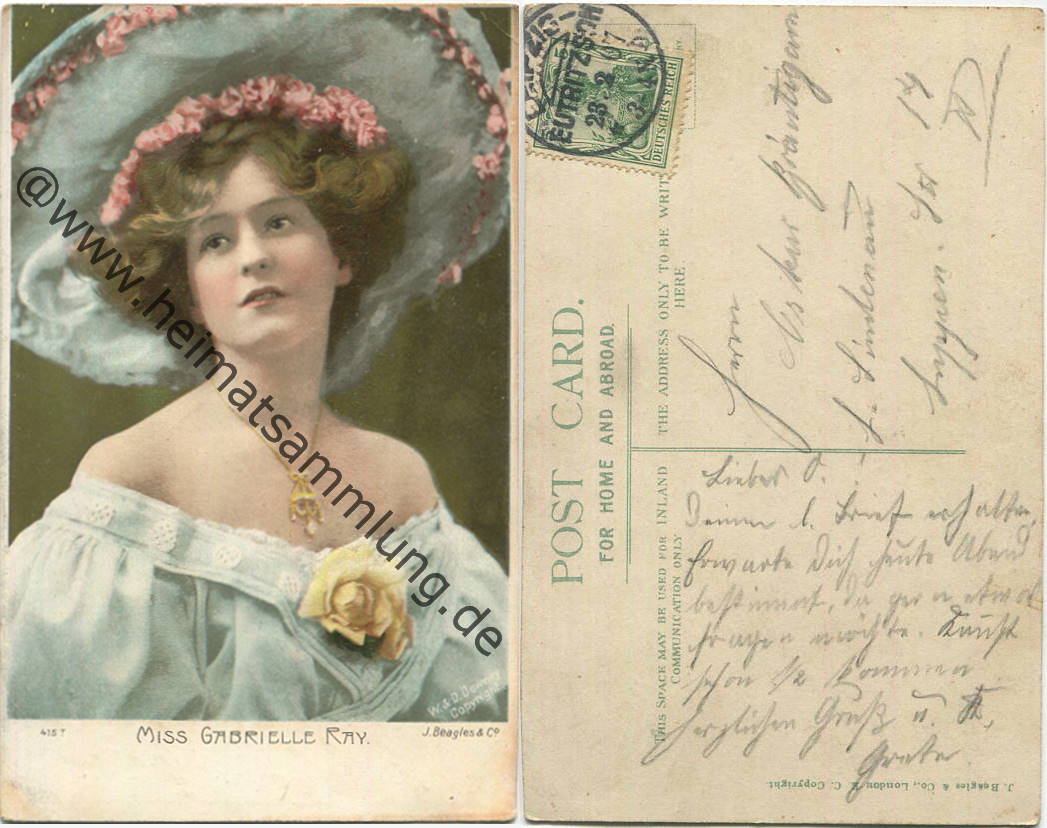 @www.heimatsammlung.de
W. & D. Downey
Copyright
415 T
MISS GABRIELLE RAY.
J. Beagles & Co
LEIPZIG-
EUTRITZSCH
28 2
DEUTSCHES REICH
POST CARD.
FOR HOME AND ABROAD.
THIS SPACE MAY BE USED FOR INLAND
COMMUNICATION ONLY
THE ADDRESS ONLY TO BE WRIT
HERE
Herrn
L. Lindenau
Str 17
Lieber O.!
Deinen l. Brief erhalten,
Erwarte Dich heute Abend
bestimmt, da gern etwas
fragen möchte. Kannst
schon 1/2 kommen.
Herzlichen Gruß u. K,
Grete.
J. Beagles & Co., London E. C. Copyright.